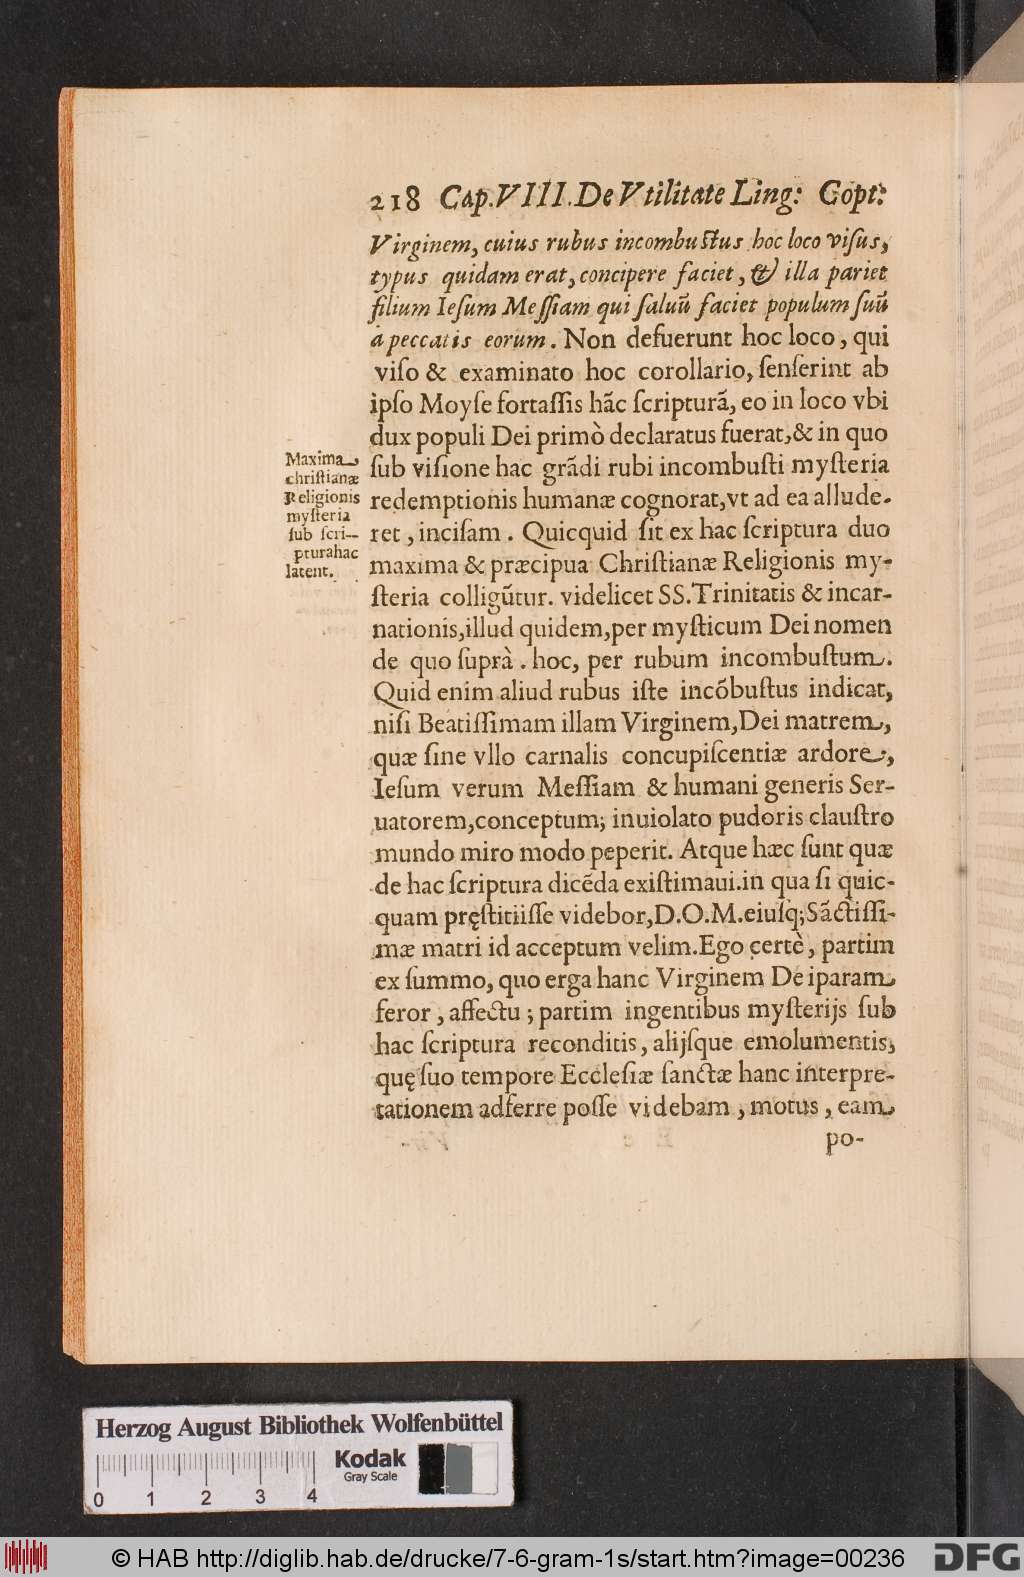 218 Cap. VIII. De Vtilitate Ling: Copt:
Virginem, cuius rubus incombustus hoc loco viſus,
typus quidam erat, concipere faciet, & illa pariet
filium Ieſum Meſſiam qui ſaluū faciet populum ſuū
a peccatis eorum. Non defuerunt hoc loco, qui
viſo & examinato hoc corollario, ſenſerint ab
ipſo Moyſe fortaſſis hāc ſcripturā, eo in loco vbi
dux populi Dei primò declaratus fuerat, & in quo
ſub viſione hac grādi rubi incombuſti myſteria
redemptionis humanæ cognorat, vt ad ea allude-
ret, inciſam. Quicquid ſit ex hac ſcriptura duo
maxima & præcipua Chriſtianæ Religionis my-
ſteria colligūtur. videlicet SS. Trinitatis & incar-
nationis, illud quidem, per myſticum Dei nomen
de quo ſuprà. hoc, per rubum incombuſtum.
Quid enim aliud rubus iſte incōbuſtus indicat,
niſi Beatiſſimam illam Virginem, Dei matrem,
quæ ſine vllo carnalis concupiſcentiæ ardore,
Ieſum verum Meſſiam & humani generis Ser-
uatorem, conceptum; inuiolato pudoris clauſtro
mundo miro modo peperit. Atque hæc ſunt quæ
de hac ſcriptura dicēda exiſtimaui. in qua ſi quic-
quam pręſtitiiſſe videbor, D.O.M. eiuſq; Sāctiſſi-
mæ matri id acceptum velim. Ego certè, partim
ex ſummo, quo erga hanc Virginem Deiparam
feror, affectu; partim ingentibus myſterijs ſub
hac ſcriptura reconditis, alijſque emolumentis,
quę ſuo tempore Eccleſiæ ſanctæ hanc interpre-
tationem adferre poſſe videbam, motus, eam
po-
Maxima
chriſtianæ
Religionis
myſteria
ſub ſcri-
ptura hac
latent.
Herzog August Bibliothek Wolfenbüttel
Kodak
Gray Scale
0 1 2 3 4
© HAB http://diglib.hab.de/drucke/7-6-gram-1s/start.htm?image=00236
DFG